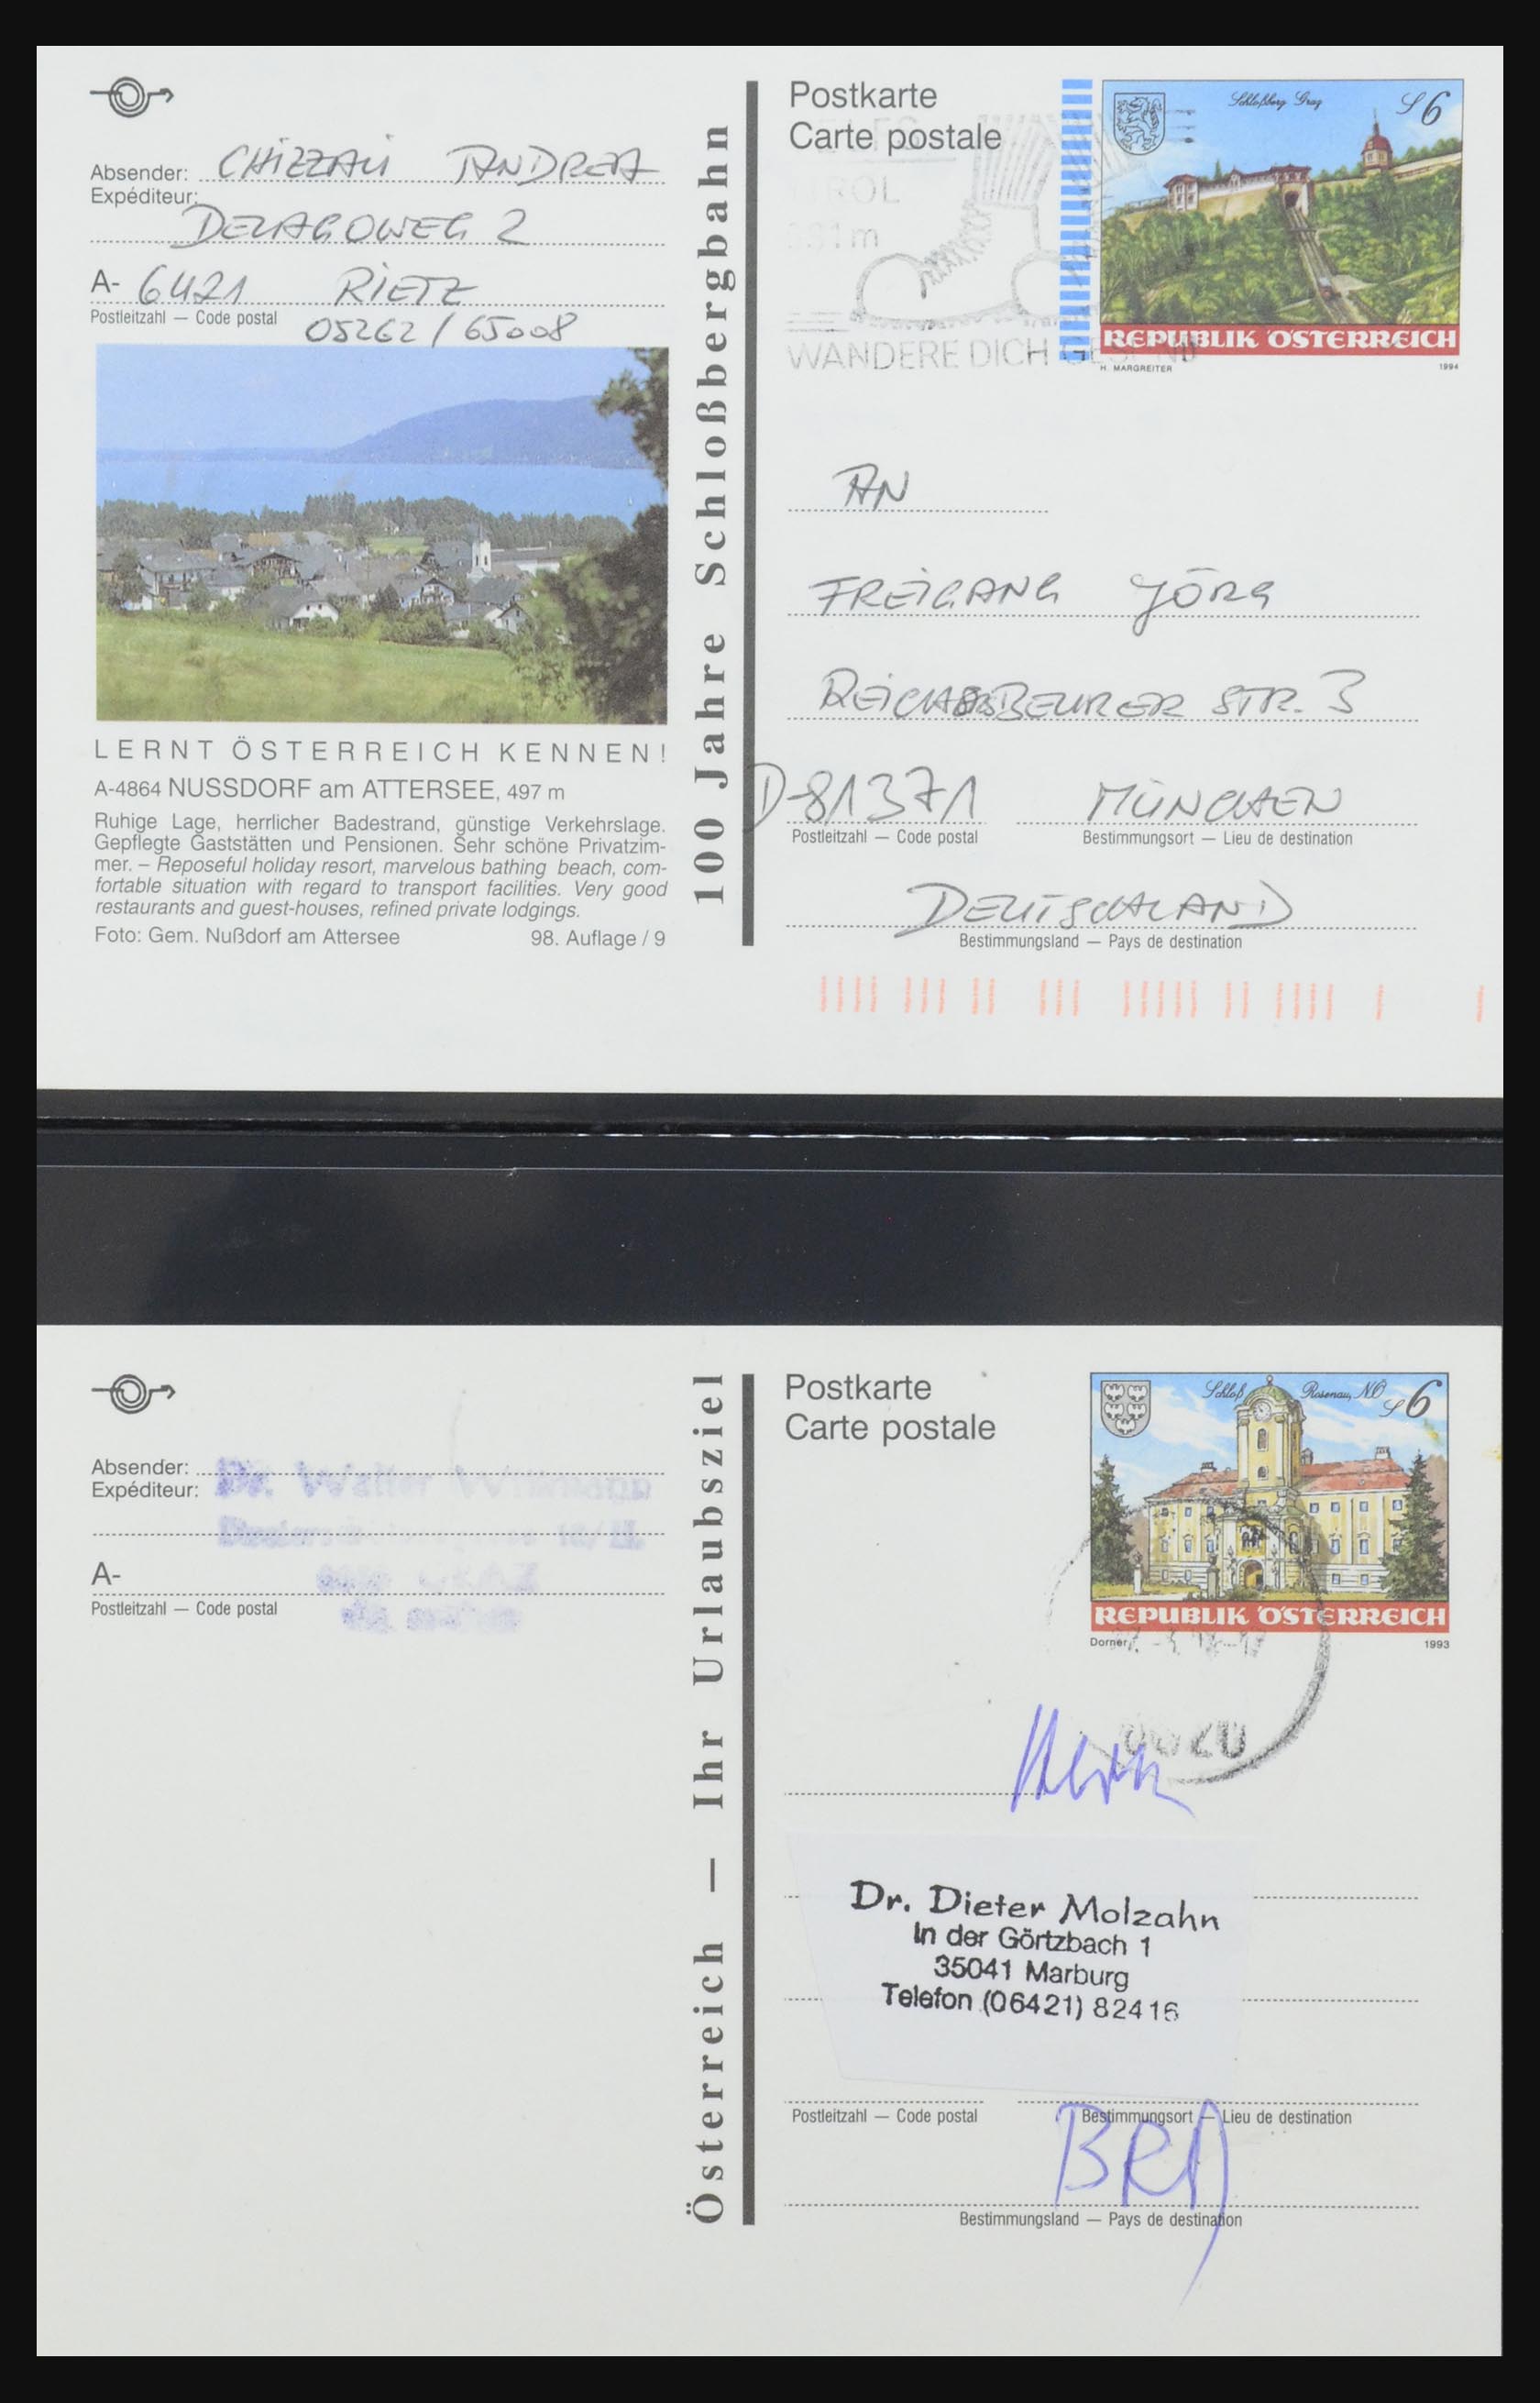 Postkarte
Carte postale
Absender: CHIZZALI ANDREA
Expéditeur:
DELAGOWEG 2
A- 6421 RIETZ
Postleitzahl — Code postal
05262 / 65008
100 Jahre Schloßbergbahn
TIROL
WANDERE DICH GESUND
Schloßberg Graz
S 6
REPUBLIK ÖSTERREICH
H. MARGREITER
1994
LERNT ÖSTERREICH KENNEN!
A-4864 NUSSDORF am ATTERSEE, 497 m
Ruhige Lage, herrlicher Badestrand, günstige Verkehrslage.
Gepflegte Gaststätten und Pensionen. Sehr schöne Privatzim-
mer. – Reposeful holiday resort, marvelous bathing beach, com-
fortable situation with regard to transport facilities. Very good
restaurants and guest-houses, refined private lodgings.
Foto: Gem. Nußdorf am Attersee 98. Auflage / 9
AN
FREIGANG JÖRG
STR. 3
D-81371 MÜNCHEN
Postleitzahl — Code postal Bestimmungsort — Lieu de destination
DEUTSCHLAND
Bestimmungsland — Pays de destination
Postkarte
Carte postale
Absender: Dr. Walter
Expéditeur:
A- GRAZ
Postleitzahl — Code postal
Österreich — Ihr Urlaubsziel
Schloß Rosenau, NÖ
S 6
REPUBLIK ÖSTERREICH
Dorner
1993
Dr. Dieter Molzahn
In der Görtzbach 1
35041 Marburg
Telefon (06421) 82416
Postleitzahl — Code postal Bestimmungsort — Lieu de destination
BRD
Bestimmungsland — Pays de destination